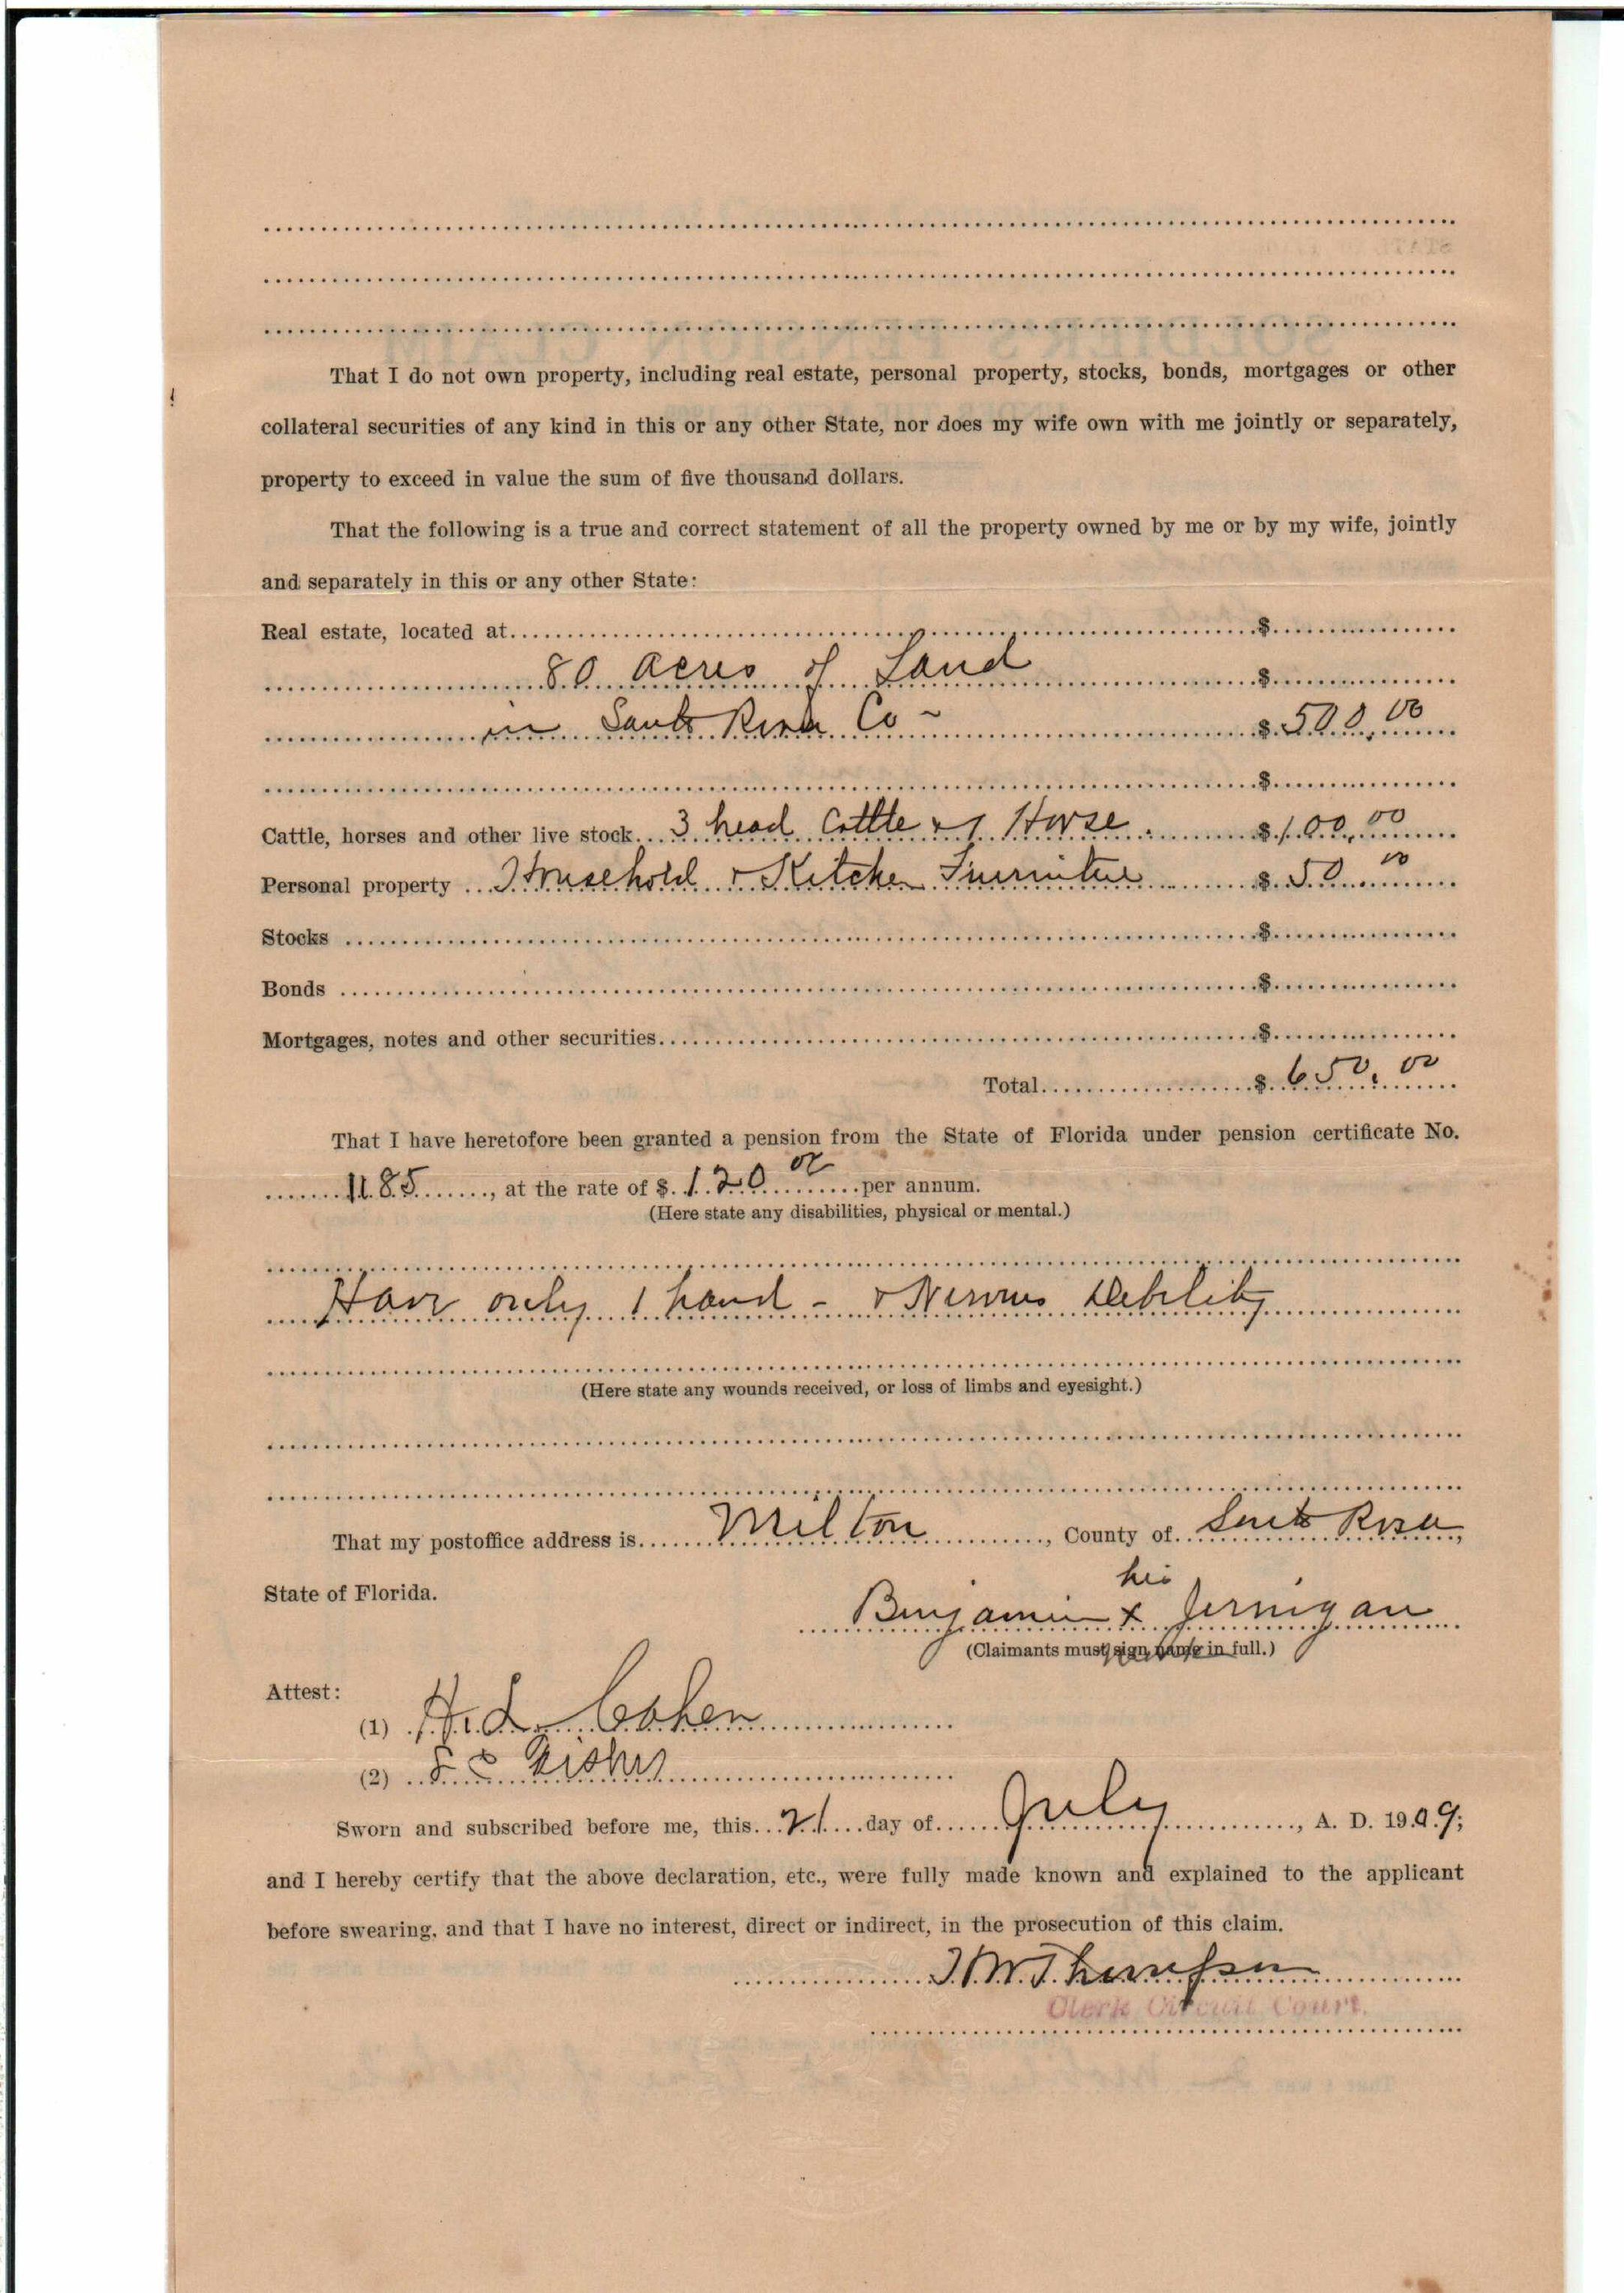 That I do not own property, including real estate, personal property, stocks, bonds, mortgages or other
collateral securities of any kind in this or any other State, nor does my wife own with me jointly or separately,
property to exceed in value the sum of five thousand dollars.
That the following is a true and correct statement of all the property owned by me or by my wife, jointly
and separately in this or any other State:
Real estate, located at $
80 acres of Land $
in Santa Rosa Co - $ 500.00
$
Cattle, horses and other live stock 3 head Cattle & 1 Horse $ 100.00
Personal property Household & Kitchen Furniture $ 50 00
Stocks $
Bonds $
Mortgages, notes and other securities $
Total $ 650.00
That I have heretofore been granted a pension from the State of Florida under pension certificate No.
1185, at the rate of $ 120 00 per annum.
(Here state any disabilities, physical or mental.)
Have only 1 hand - & Nervous Debility
(Here state any wounds received, or loss of limbs and eyesight.)
That my postoffice address is Milton, County of Santa Rosa,
State of Florida.
his
Benjamin x Jernigan
mark
(Claimants must sign name in full.)
Attest:
(1) H. L. Cohen
(2) Fisher
Sworn and subscribed before me, this 21 day of July, A. D. 1909;
and I hereby certify that the above declaration, etc., were fully made known and explained to the applicant
before swearing, and that I have no interest, direct or indirect, in the prosecution of this claim.
Thompson
Clerk Circuit Court.